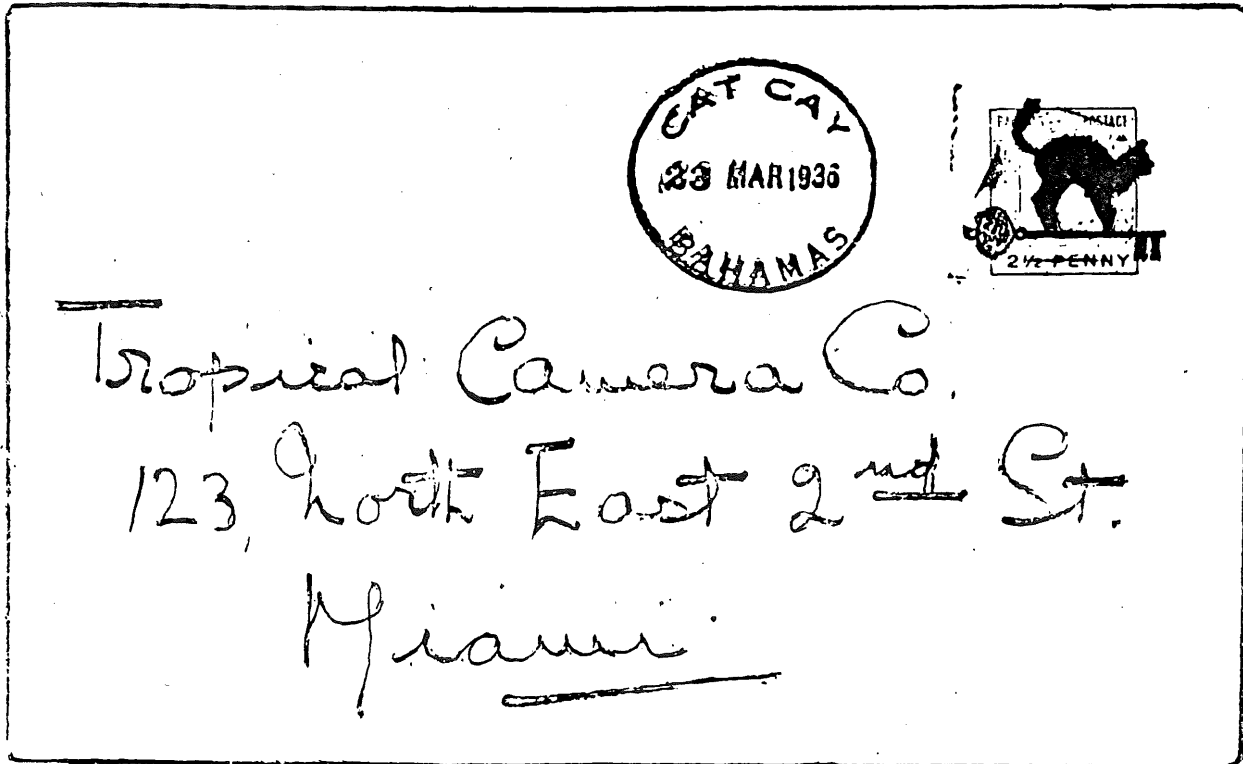 CAT CAY
23 MAR 1936
BAHAMAS
POSTAGE
2½ PENNY
Tropical Camera Co.
123, North East 2nd St.
Miami